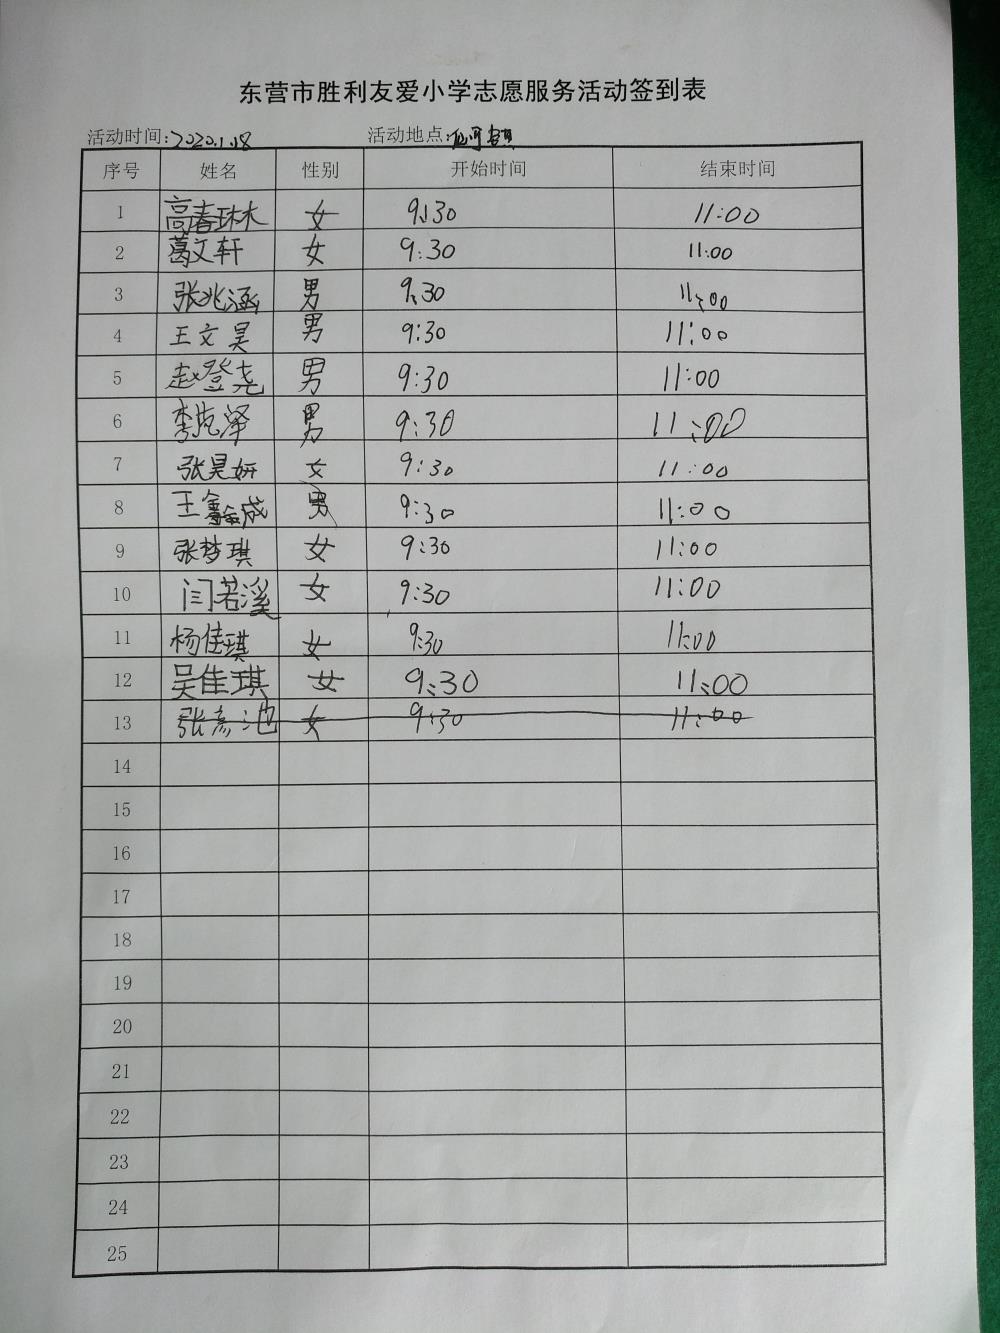 东营市胜利友爱小学志愿服务活动签到表
活动时间:2020.1.18 活动地点:
序号 姓名 性别 开始时间 结束时间
1 高春琳 女 9:30 11:00
2 葛文轩 女 9:30 11:00
3 张兆涵 男 9:30 11:00
4 王文昊 男 9:30 11:00
5 赵登尧 男 9:30 11:00
6 李 泽 男 9:30 11:00
7 张昊妍 女 9:30 11:00
8 王 成 男 9:30 11:00
9 张梦琪 女 9:30 11:00
10 闫若溪 女 9:30 11:00
11 杨佳琪 女 9:30 11:00
12 吴佳琪 女 9:30 11:00
13 张彦池 女 9:30 11:00
14
15
16
17
18
19
20
21
22
23
24
25